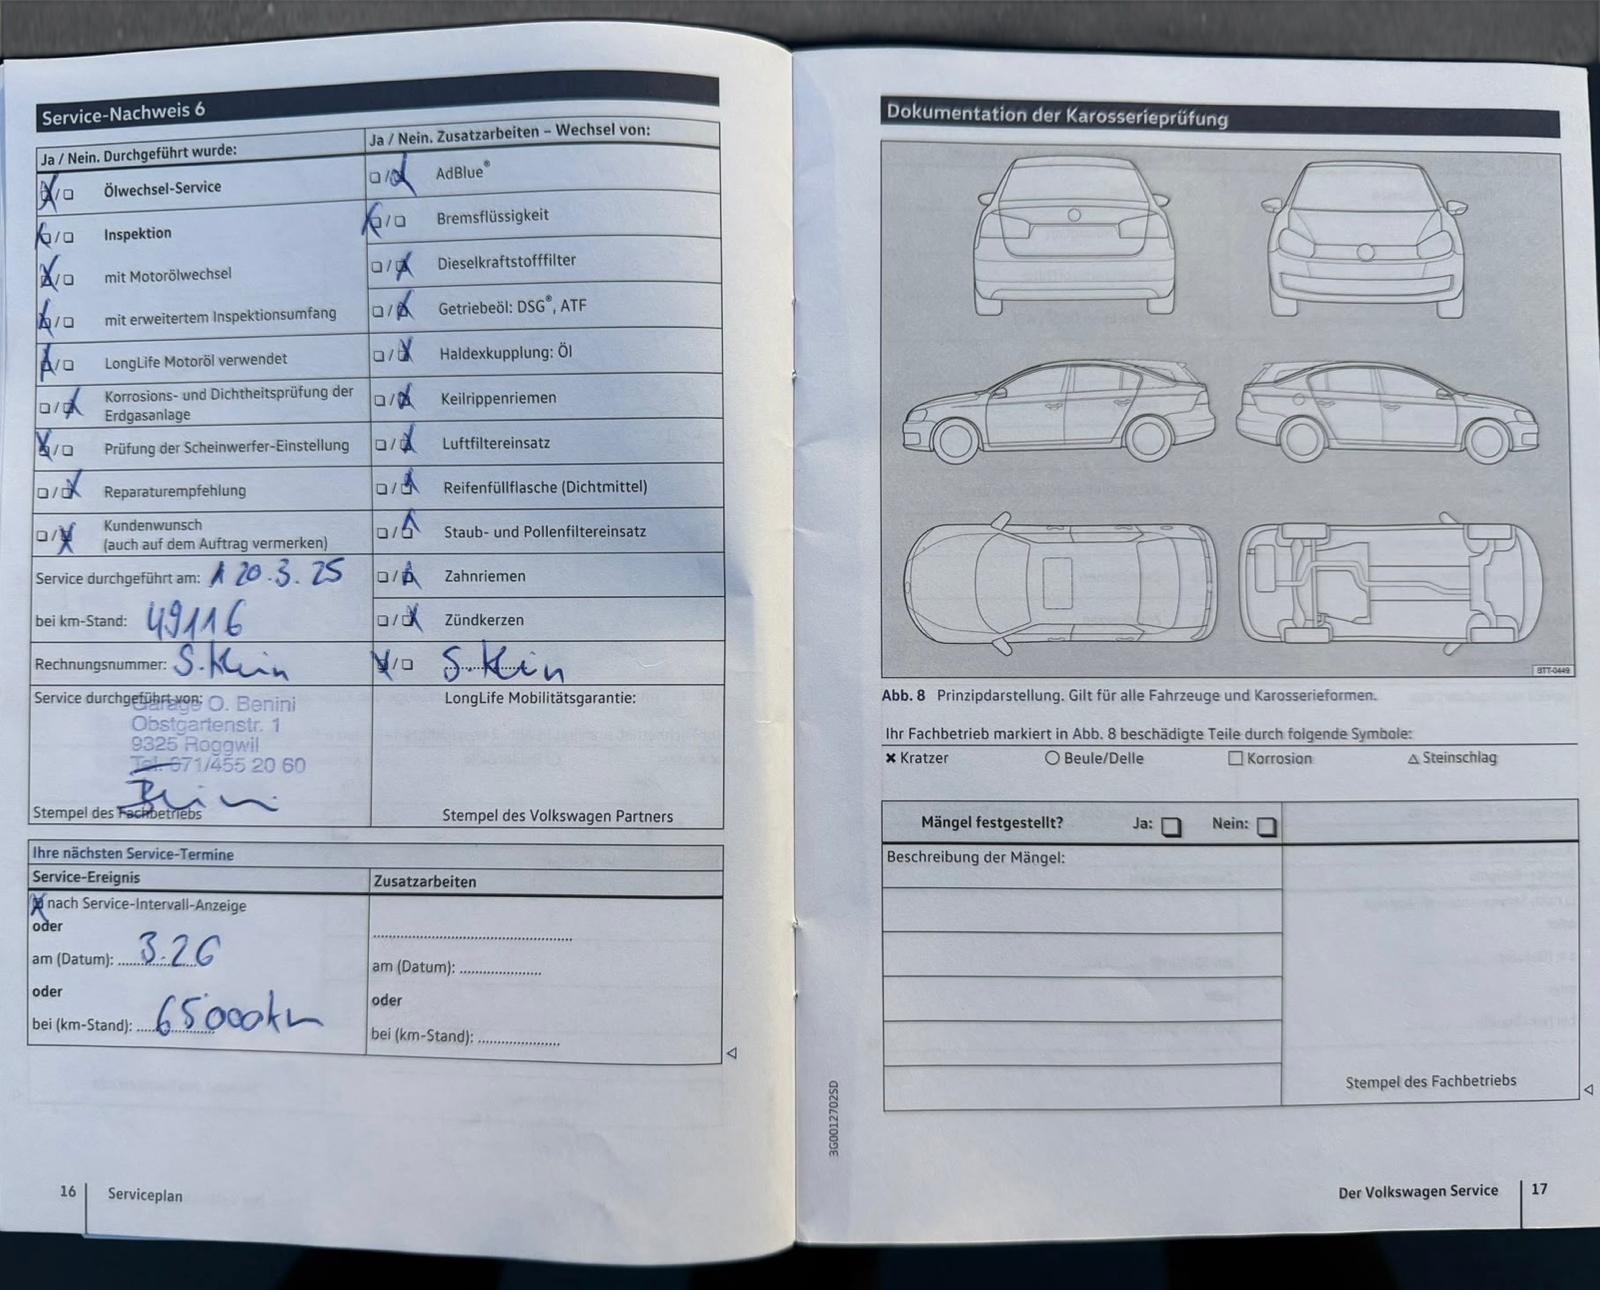 Service-Nachweis 6
Ja / Nein. Durchgeführt wurde:
Ölwechsel-Service
Inspektion
mit Motorölwechsel
mit erweitertem Inspektionsumfang
LongLife Motoröl verwendet
Korrosions- und Dichtheitsprüfung der
Erdgasanlage
Prüfung der Scheinwerfer-Einstellung
Reparaturempfehlung
Kundenwunsch
(auch auf dem Auftrag vermerken)
Service durchgeführt am: 20.3.25
bei km-Stand: 49116
Rechnungsnummer: S. Klein
Service durchgeführt von:
Garage O. Benini
Obstgartenstr. 1
9325 Roggwil
Tel. 071/455 20 60
Stempel des Fachbetriebs
Ja / Nein. Zusatzarbeiten – Wechsel von:
AdBlue®
Bremsflüssigkeit
Dieselkraftstofffilter
Getriebeöl: DSG®, ATF
Haldexkupplung: Öl
Keilrippenriemen
Luftfiltereinsatz
Reifenfüllflasche (Dichtmittel)
Staub- und Pollenfiltereinsatz
Zahnriemen
Zündkerzen
S. Klein
LongLife Mobilitätsgarantie:
Stempel des Volkswagen Partners
Ihre nächsten Service-Termine
Service-Ereignis
nach Service-Intervall-Anzeige
oder
am (Datum): 3.26
oder
bei (km-Stand): 65000km
Zusatzarbeiten
am (Datum):
oder
bei (km-Stand):
16 Serviceplan
Dokumentation der Karosserieprüfung
BTT-0449
Abb. 8 Prinzipdarstellung. Gilt für alle Fahrzeuge und Karosserieformen.
Ihr Fachbetrieb markiert in Abb. 8 beschädigte Teile durch folgende Symbole:
Kratzer Beule/Delle Korrosion Steinschlag
Mängel festgestellt? Ja: Nein:
Beschreibung der Mängel:
Stempel des Fachbetriebs
3G0012702SD
Der Volkswagen Service 17